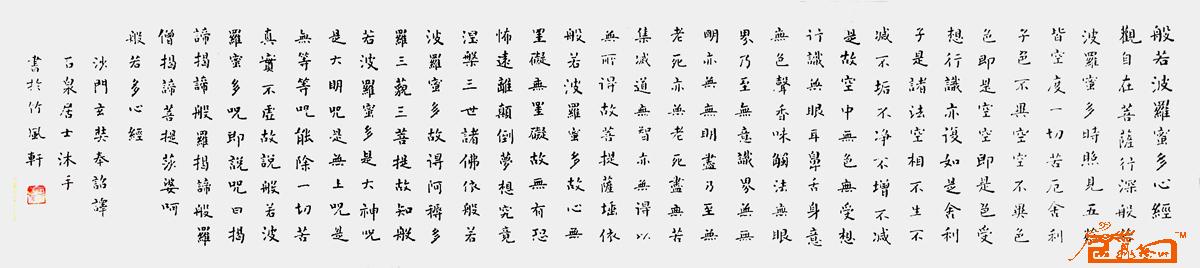 般若波羅蜜多心經
觀自在菩薩行深般若
波羅蜜多時照見五蘊
皆空度一切苦厄舍利
子色不異空空不異色
色即是空空即是色受
想行識亦復如是舍利
子是諸法空相不生不
滅不垢不淨不增不減
是故空中無色無受想
行識無眼耳鼻舌身意
無色聲香味觸法無眼
界乃至無意識界無無
明亦無無明盡乃至無
老死亦無老死盡無苦
集滅道無智亦無得以
無所得故菩提薩埵依
般若波羅蜜多故心無
罣礙無罣礙故無有恐
怖遠離顛倒夢想究竟
涅槃三世諸佛依般若
波羅蜜多故得阿耨多
羅三藐三菩提故知般
若波羅蜜多是大神呪
是大明呪是無上呪是
無等等呪能除一切苦
真實不虛故說般若波
羅蜜多呪即說呪曰揭
諦揭諦般羅揭諦般羅
僧揭諦菩提莎婆呵
般若多心經
沙門玄奘奉詔譯
泉居士沐手
書於竹風軒